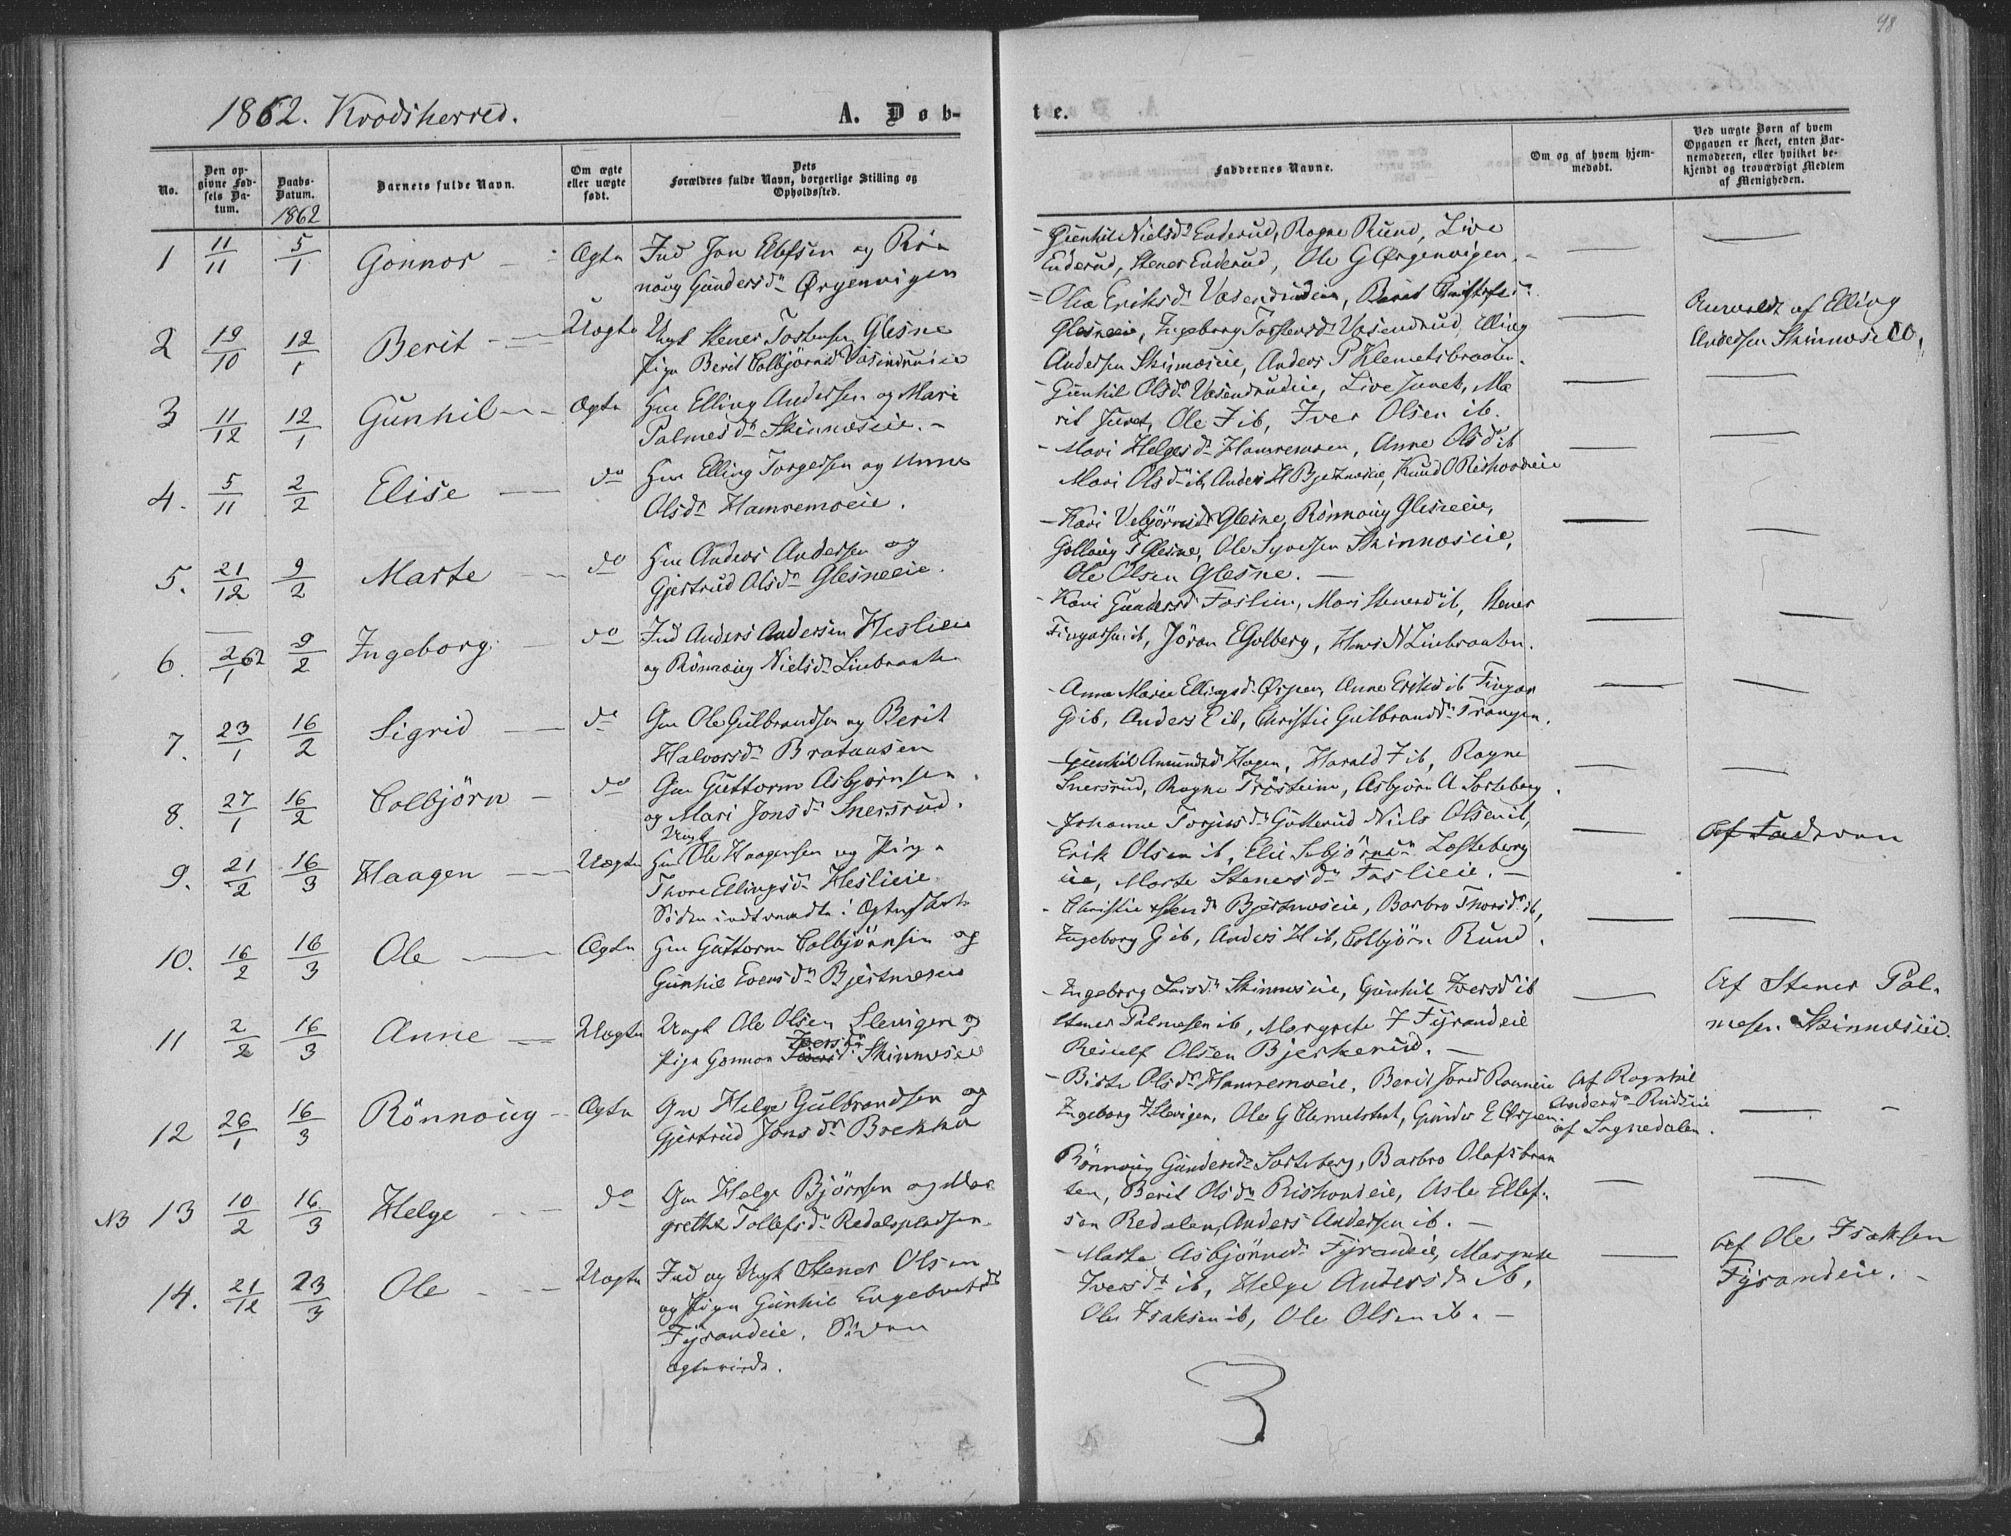 98
1862. Krodsherred.
A. Døb-
te.
No.
Den op-
givne Fød-
sels Da-
tum.
Daabs-
Datum.
1862
Barnets fulde Navn.
Om ægte
eller uægte
født.
Dets
Forældres fulde Navn, borgerlige Stilling og
Opholdssted.
Faddernes Navne.
Om og af hvem hjem-
medøbt.
Ved uægte Børn af hvem
Opgaven er skeet, enten Bar-
nemoderen, eller hvilket be-
kjendt og troværdigt Medlem
af Menigheden.
1 11/11 5/1 Gonnor Ægte Ind Jon Ellefsen og Røn
noug Gundersdr Ørgenvigen
Gunhil Nielsdr Enderud, Ragne Rund, Live
Enderud, Stener Enderud, Ole G Ørgenvigen.
2 19/10 12/1 Berit Uægte Ungk Stener Tostensen Glesne
Pige Berit Colbjörnsd Vasendrudeie
Olia Eriksdr Vasendrudeie, Berit
Glesneeie, Ingeborg Torstensdr Vasendrud, Elling
Andersen Skinnæseie, Anders P Klemetsbraaten.
Anmeldt af Elling
Andersen Skinnæseie.
3 11/12 12/1 Gunhil Ægte Hm Elling Andersen og Mari
Palmesdr Skinnæseie.
Gunhil Olsdr Vasendrudeie, Live Juret, Ma
rit Juret, Ole I ib, Iver Olsen ib.
4. 5/11 2/2 Elise do Hm Elling Torgersen og Anne
Olsdr Hamremoeie.
Mari Helgesdr Hamremoen, Anne Olsdr ib
Mari Olsdr ib, Anders H Bjertnæseie, Knud O Rishovdeie
5. 21/12 9/2 Marte do Hm Anders Andersen og
Gjertrud Olsdr Glesneeie.
Kari Vebjörnsdr Glesne, Rönnoug Glesneeie,
Gollaug T Glesne, Ole Syversen Skinnæseie,
Ole Olsen Glesne.
6. 2/1 62 9/2 Ingeborg do Ind Anders Andersen Heslien
og Rönnoug Nielsdr Linbraate
Kari Gundersd Faslien, Mari Stenersd ib, Stener
Fingarsen ib, Jöran E Golberg, Hans N Linbraaten.
7. 23/1 16/2 Sigrid do Gm Ole Gulbrandsen og Berit
Halvorsdr Brataasen
Anne Marie Ellingsd Ørpen, Anne Eriksd ib Fingar
G ib, Anders E ib, Christie Gulbrandsdr Trangen.
8. 27/1 16/2 Colbjörn do Gm Guttorm Asbjørnsen
og Mari Jonsdr Snersrud.
Gunhil Amundsd Hagen, Harald I ib, Ragne
Snersrud, Ragne Trösteim, Asbjörn A Sorteberg.
9. 21/2 16/3 Haagen Uægte Ungk
Hm Ole Haagensen og Pige
Thore Ellingsdr Heslieie.
Siden indtraadte i Ægteskab
Johanne Torjusdr Gutterud Niels Olsen ib,
Erik Olsen ib, Elie Sebjørnsdr Losteberg
eie, Marte Stenersdr Faslieie.
Af Faderen
10. 16/2 16/3 Ole Ægte Gm Guttorm Colbjörnsen og
Gunhil Eversdr Bjertnæseie
Christie Stensdr Bjertnæseie, Barbro Thorsdr ib,
Ingeborg G ib, Anders H ib, Colbjörn Rund.
11 2/2 16/3 Anne Uægte Ungk Ole Olsen Slevigen og
Iversdr
Pige Gonnor Iversdr Skinnæseie
Ingeborg Larsdr Skinnæseie, Gunhil Iversd ib
Stener Palmesen ib, Margrete I Fyrandeie
Reiulf Olsen Bjerkerud.
Af Stener Pal-
mesen Skinnæseie.
12 26/1 16/3 Rönnoug Ægte Gm Helge Gulbrandsen og
Gjertrud Jonsdr Brekke
Birte Olsdr Hamremoeie, Berit Jonsd
Ingeborg I Slevigen, Ole G Clemetstuet, Gunder E Ørpen
Af Ragnhil
Andersdr Rudseie
af Sognedalen.
NB 13 10/2 16/3 Helge do Gm Helge Björnsen og Mar
grethe Tollefsdr Redalspladsen.
Rönnoug Gundersdr Sorteberg, Barbro Olafsbraa
ten, Berit Olsdr Rishovdeie, Asle Ellef-
sen Redalen, Anders Andersen ib.
14. 21/12 23/3 Ole Uægte Ind og Ungk Stener Olsen
og Pige Gunhil Engebretsdr
Fyrandeie. Siden
ægteviede.
Marte Asbjörnsdr Fyrandeie, Margrete
Iversdr ib, Helge Andersdr ib,
Ole Isaksen ib, Ole Olsen ib.
Af Ole Isaksen
Fyrandeie.
3